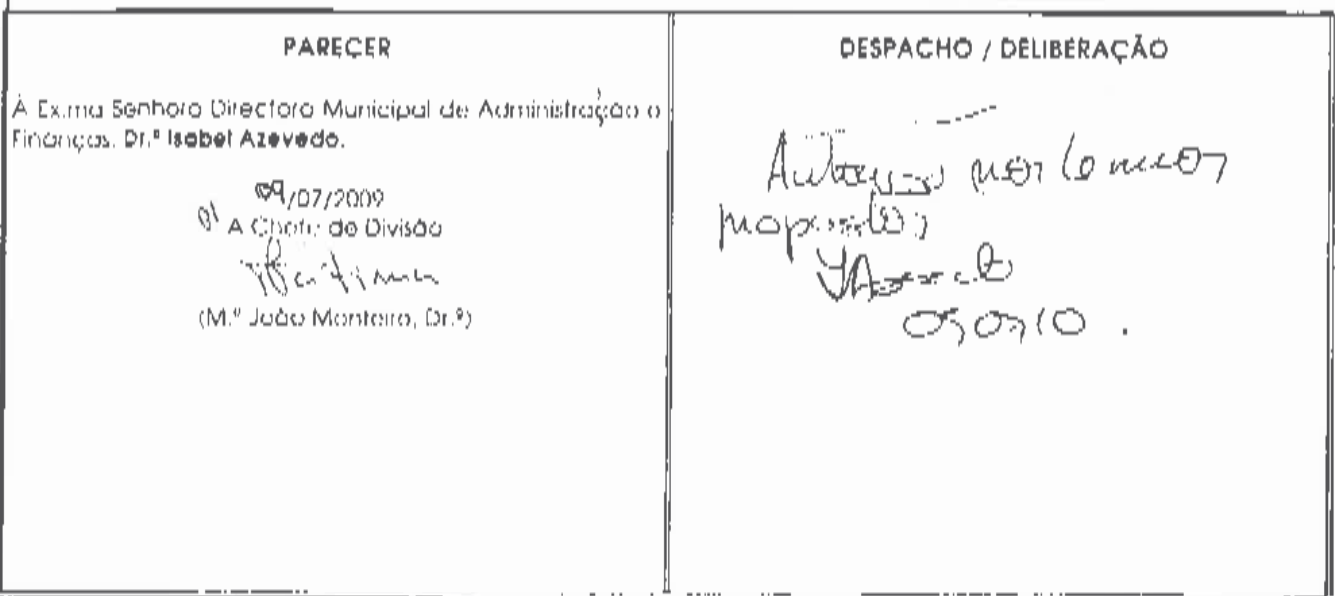 PARECER
À Ex.ma Senhora Directora Municipal de Administração e
Finanças. Dr.ª Isabel Azevedo.
09/07/2009
A Chefe de Divisão
(M.ª João Monteiro, Dr.ª)
DESPACHO / DELIBERAÇÃO
Autorizo nos termos
propostos